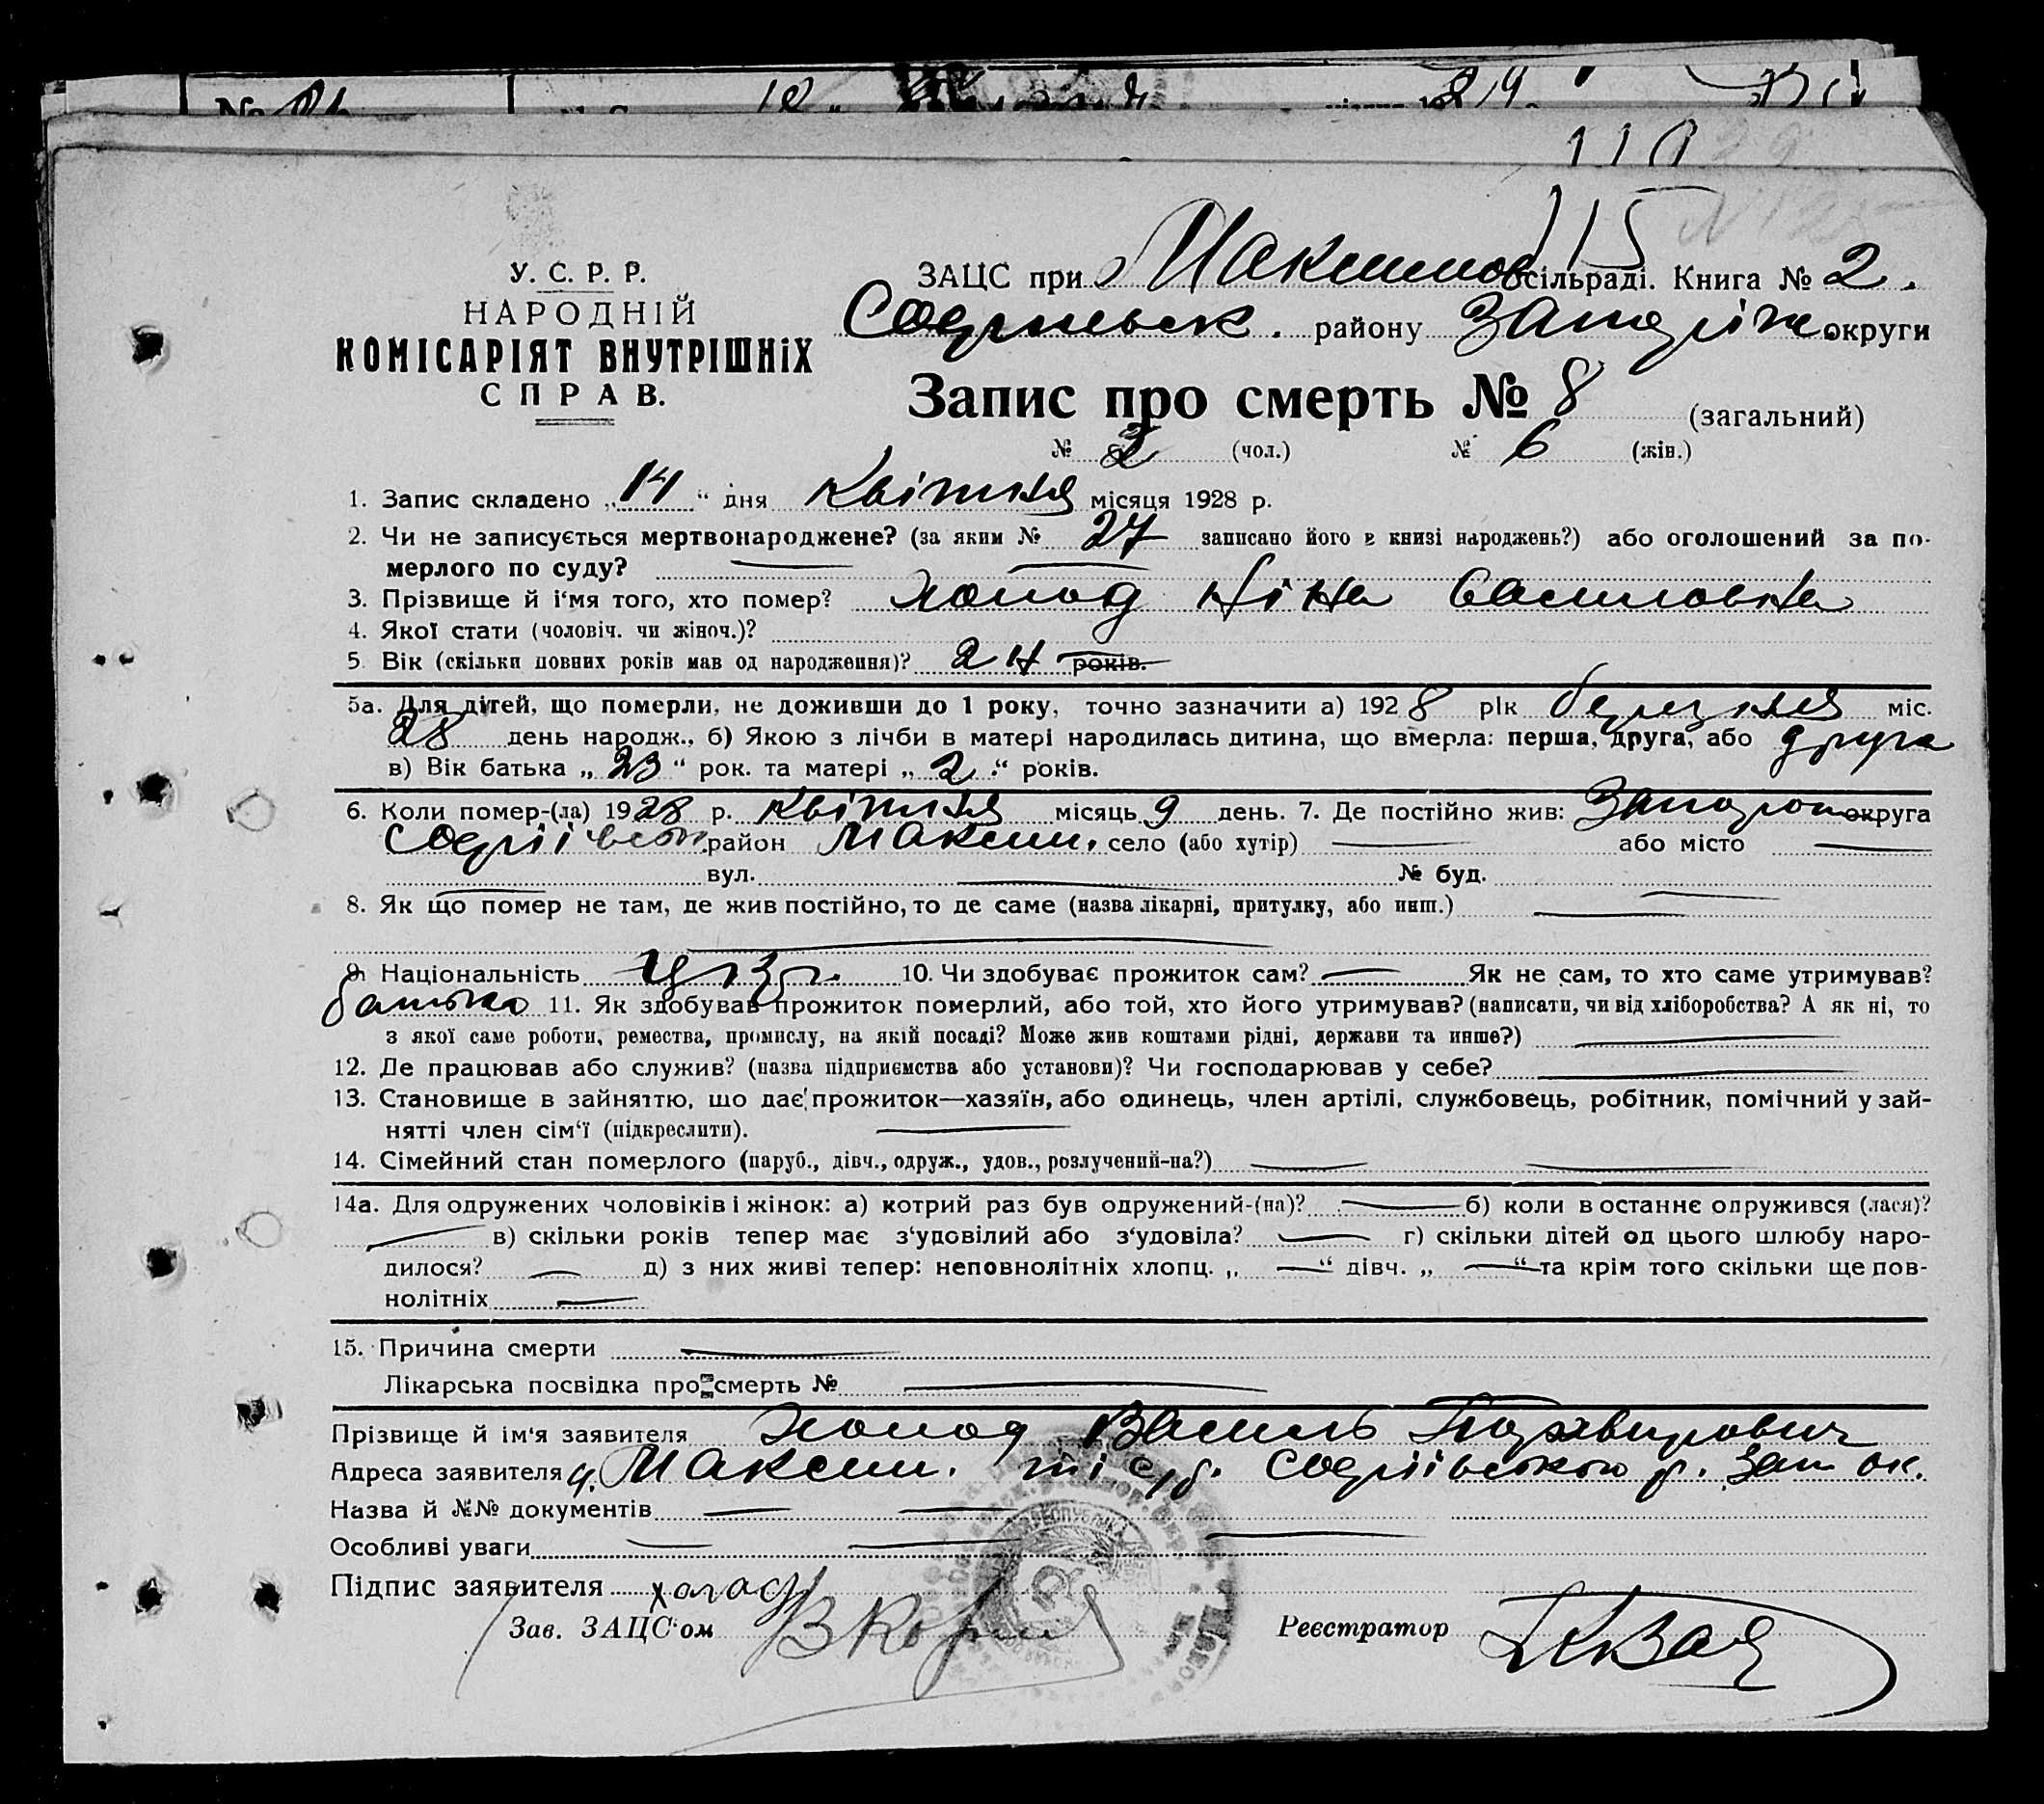 115
У. С. Р. Р.
НАРОДНІЙ
КОМІСАРІЯТ ВНУТРІШНІХ
СПРАВ.
ЗАЦС при Максимов сільраді. Книга № 2.
району Запоріж округи
Запис про смерть № 8 (загальний)
№ 2 (чол.) № 6 (жін.)
1. Запис складено „14" дня Квітня місяця 1928 р.
2. Чи не записується мертвонароджене? (за яким № 27 записано його в книзі народжень?) або оголошений за по-
мерлого по суду? —
3. Прізвище й і'мя того, хто помер? Холод Ніна Василовна
4. Якої стати (чоловіч. чи жіноч.)?
5. Вік (скільки повних років мав од народження)? років.
5а. Для дітей, що померли, не доживши до 1 року, точно зазначити а) 1928 рік березня міс.
28 день народж., б) Якою з лічби в матері народилась дитина, що вмерла: перша, друга, або друга
в) Вік батька „23" рок. та матері „2" років.
6. Коли помер-(ла) 1928 р. квітня місяць 9 день. 7. Де постійно жив: округа
район Максим. село (або хутір) — або місто —
вул. — № буд. —
8. Як що помер не там, де жив постійно, то де саме (назва лікарні, притулку, або инш.) —
9. Національність 10. Чи здобуває прожиток сам? — Як не сам, то хто саме утримував?
батько 11. Як здобував прожиток померлий, або той, хто його утримував? (написати, чи від хліборобства? А як ні, то
з якої саме роботи, ремества, промислу, на якій посаді? Може жив коштами рідні, держави та инше?) —
12. Де працював або служив? (назва підприємства або установи)? Чи господарював у себе? —
13. Становище в зайняттю, що дає прожиток—хазяїн, або одинець, член артілі, службовець, робітник, помічний у зай-
нятті член сім'ї (підкреслити). —
14. Сімейний стан померлого (паруб., дівч., одруж., удов., розлучений-на?) — —
14а. Для одружених чоловіків і жінок: а) котрий раз був одружений-(на)? — б) коли в останнє одружився (лася)?
— в) скільки років тепер має з'удовілий або з'удовіла? — г) скільки дітей од цього шлюбу наро-
дилося? — д) з них живі тепер: неповнолітніх хлопц. „—" дівч. „—" та крім того скільки ще пов-
нолітніх —
15. Причина смерти —
Лікарська посвідка про смерть № —
Прізвище й ім'я заявителя Холод Василь
Адреса заявителя Максим.
Назва й №№ документів — —
Особливі уваги — — —
Підпис заявителя Холод
Зав. ЗАЦС'ом
Реєстратор